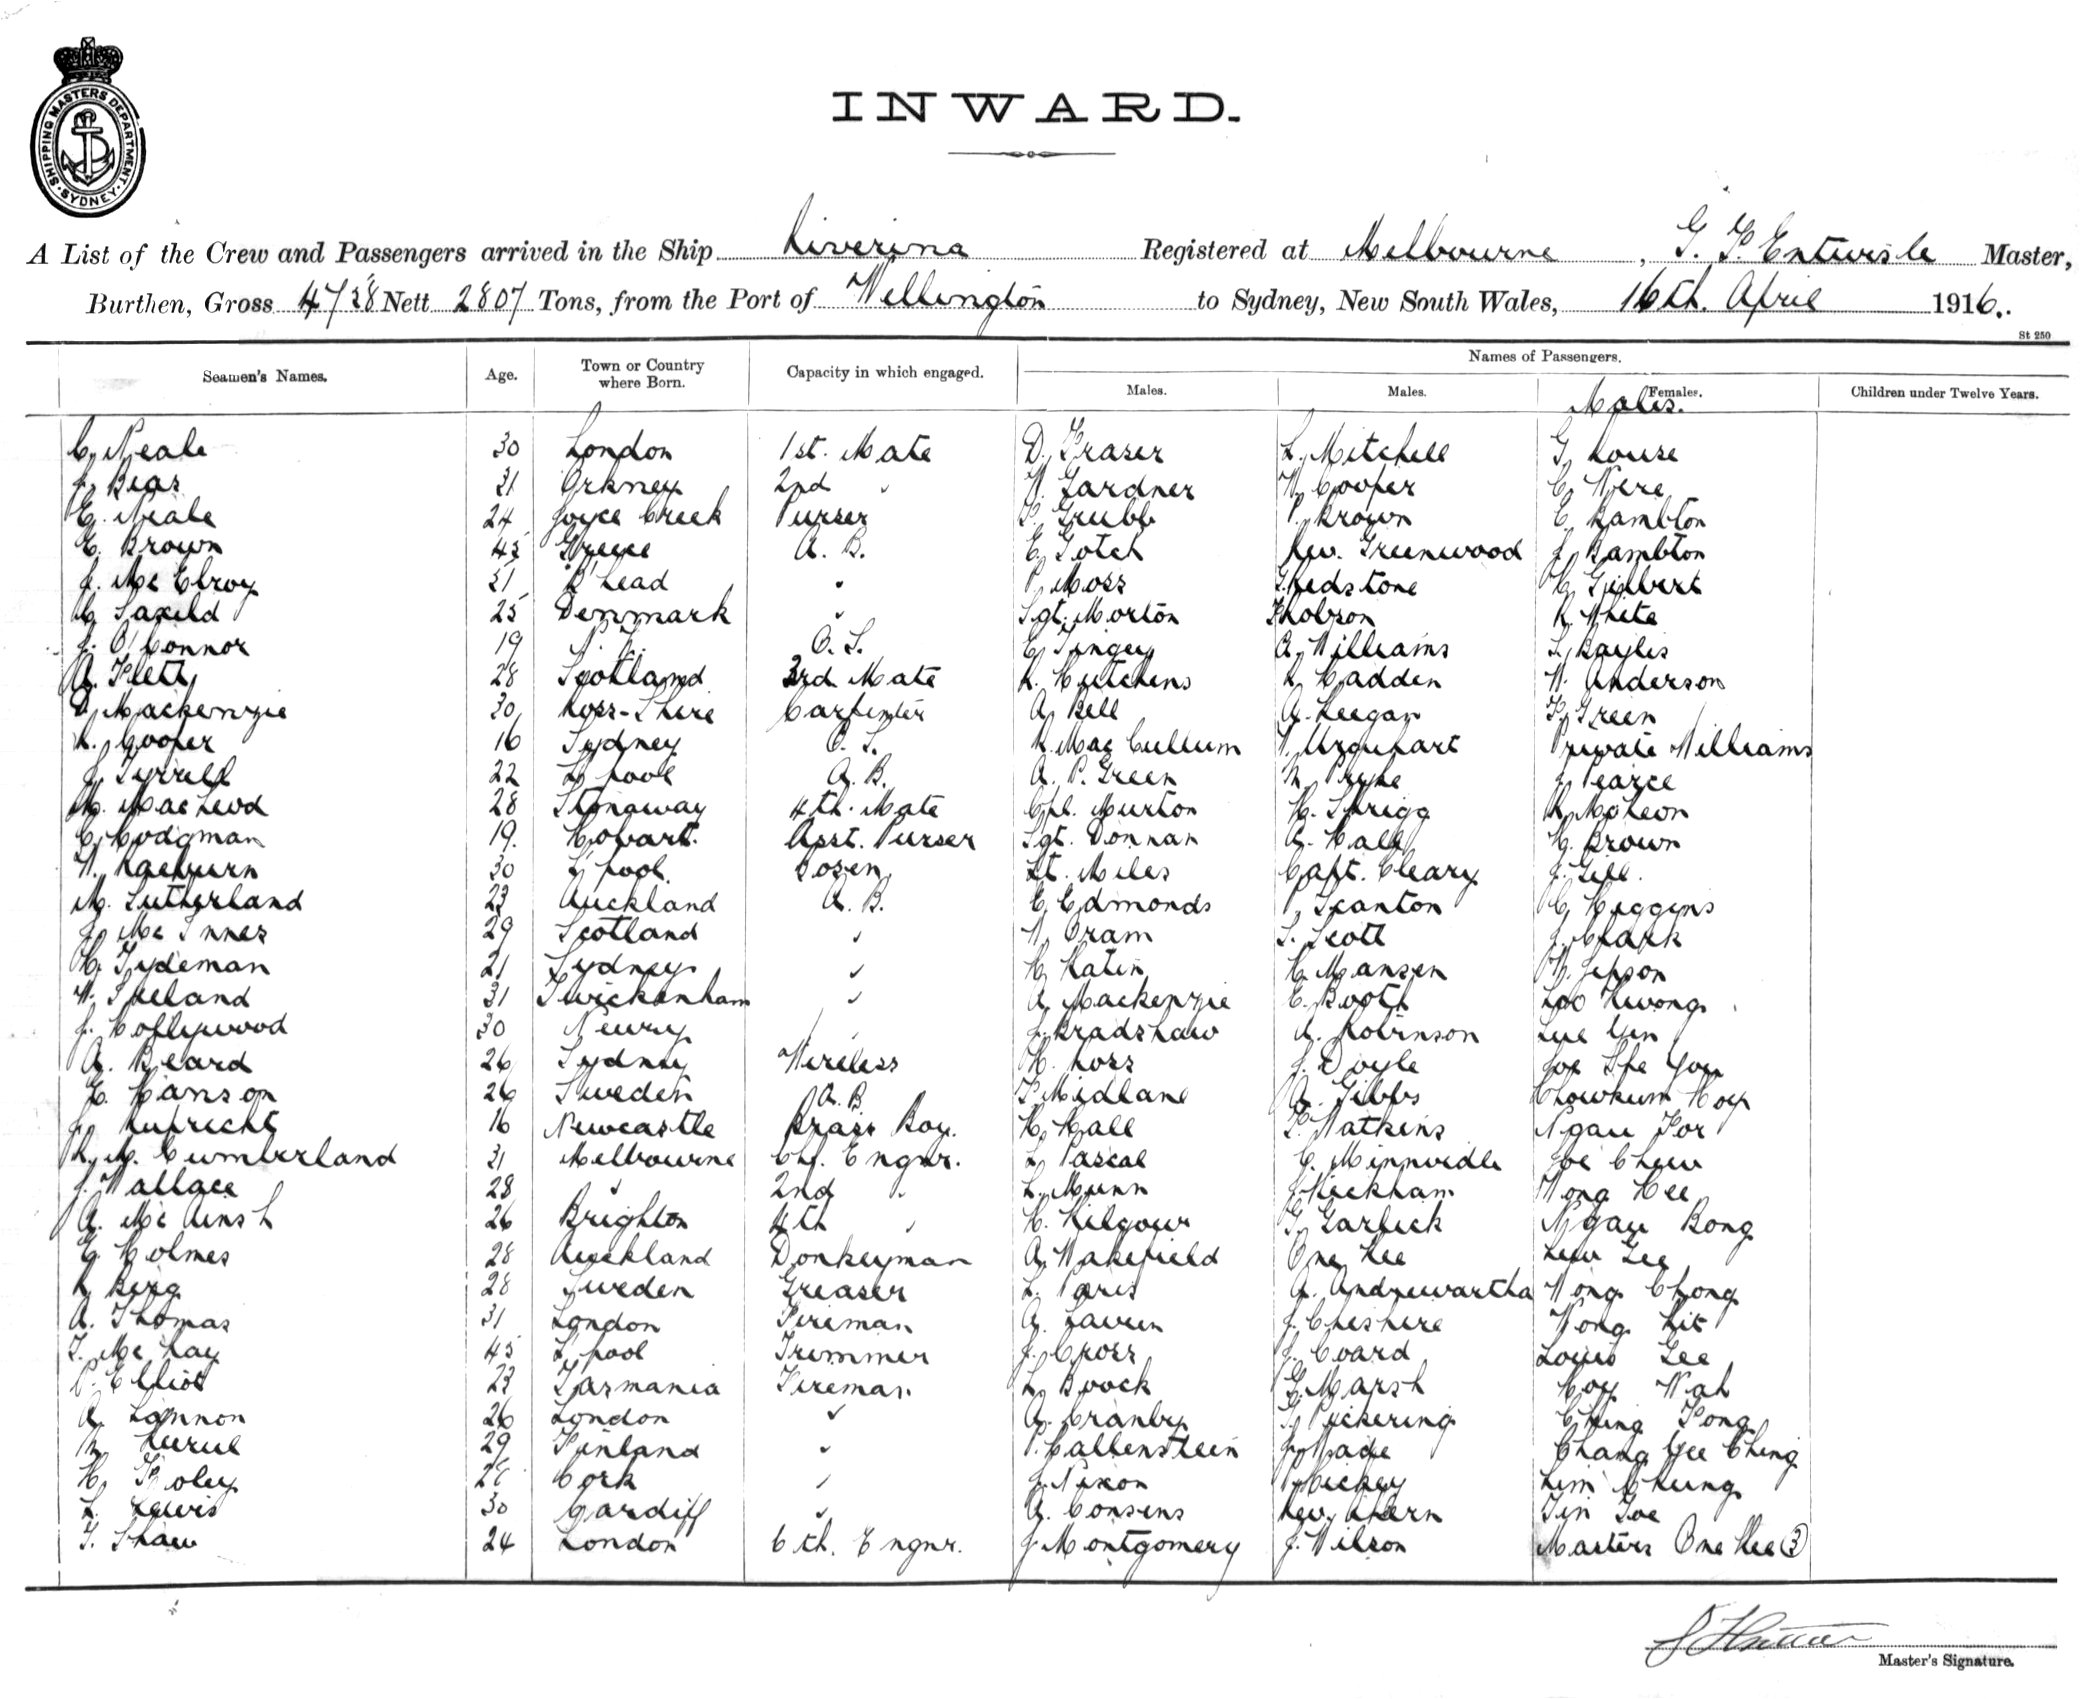 SHIPPING MASTERS DEPARTMENT. SYDNEY
INWARD.
A List of the Crew and Passengers arrived in the Ship Riverina Registered at Melbourne, G. P. Entwisle Master,
Burthen, Gross 4738 Nett 2807 Tons, from the Port of Wellington to Sydney, New South Wales, 16th. April 1916.
St 250
Seamen's Names. Age. Town or Country where Born. Capacity in which engaged. Names of Passengers.
Males. Males. Females. Males. Children under Twelve Years.
C. Neale 30 London 1st. Mate D. Fraser L. Mitchell G. Rouse
J. Bews 31 Orkney 2nd " W. Gardner W. Cooper C. Were
E. Neale 24 Joyce Creek Purser F. Grubb P. Brown E. Bambton
E. Brown 45 Greece A. B. E. Gotch Rev. Greenwood J. Bambton
J. Mc Elroy 21 B'head " P. Moss Gledstone H. Gilbert
C. Saxild 25 Denmark " Sgt. Morton Hobson R. White
J. O'Connor 19 N. Z. O. S. C. Tingey A. Williams S. Baylis
A. Flett 28 Scotland 3rd. Mate R. Hutchens R. Hadden W. Anderson
D. Mackenzie 30 Ross-Shire Carpenter A. Bell A. Keegan F. Green
R. Cooper 16 Sydney O. S. R. Mac Cullum W. Urquhart Private Williams
J. Tyrrell 22 L'pool A. B. A. P. Green N. Pryke J. Pearce
M. MacLeod 28 Stonaway 4th. Mate Cpl. Murton H. Sprigg R. McKeon
C. Hodgman 19. Hobart. Asst. Purser Sgt. Donnan A. Hall H. Brown
W. Raeburn 30 L'pool. Bosen Lt. Miles Capt. Cleary J. Gill.
M. Sutherland 23 Auckland A. B. E. Edmonds P. Scanton C. Higgins
J. Mc Innes 29 Scotland " W. Oram S. Scott J. Clark
H. Tydeman 21 Sydney " H. Katin H. Mansen W. Jepson
W. Speland 31 Twickenham " A. Mackenzie C. Booth Loo Kwong
J. Hollywood 30 Newry " J. Bradshaw A. Robinson Lue Yin
A. Beard 26 Sydney Wireless H. Ross J. Doyle Joe She You
E. Hanson 26 Sweden A. B. F. Midlane A. Gibbs Chowkum Hoy
J. Ruprecht 16 Newcastle Brass Boy. H. Hall F. Watkins Ngau For
R. M. Cumberland 31 Melbourne Chf. Engnr. L. Pascal C. Minnvidle Joe Chew
J. Wallace 28 " 2nd " L. Munn J. Kickham Wong Hee
A. Mc Ainsh 26 Brighton 4th " H. Kilgour G. Garlick Ngau Bong
E. Holmes 28 Auckland Donkeyman A. Wakefield One Kee Lew Gee
R. Berg 28 Sweden Greaser L. Paris A. Andrewartha Wong Chong
A. Thomas 31 London Fireman A. Laven J. Cheshire Wong Kit
T. Mc Kay 45 L'pool Trimmer J. Cross J. Coard Louis Gee
P. Elliot 23 Tasmania Fireman L. Boock G. Marsh Hoy Wah
A. Lannon 26 London " A. Cranby G. Pickering Ching Fong
N. Kurul 29 Finland " P. Hallenstein J. Wade Chang Yee Ching
H. Foley 28 Cork " J. Nixon P. Hickey Lim Chung
L. Lewis 30 Cardiff " A. Consens Rev. Ahern Tin Joe
T. Shaw 24 London 6th. Engnr. J. Montgomery J. Wilson Masters One Kee (3)
Master's Signature.